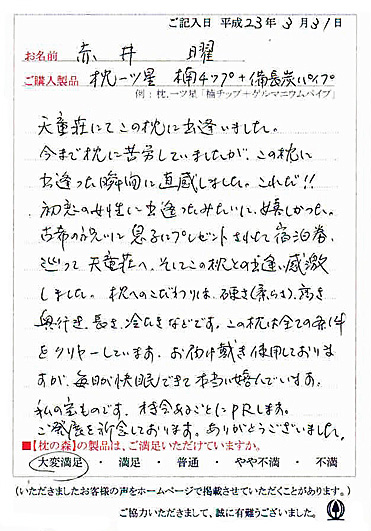 ご記入日 平成23年3月31日
お名前 赤井 曜
ご購入製品 枕一ツ星 楠チップ+備長炭パイプ
例:枕.一ツ星「楠チップ+ゲルマニウムパイプ」
天童荘にてこの枕に出逢いました。
今まで枕に苦労していましたが、この枕に
出逢った瞬間に直感しました。これだ!!
初恋の女性に出逢ったみたいに、嬉しかった。
古希の祝いに息子にプレゼントされて宿泊券、
巡って天童荘へ、そしてこの枕との出逢い感激
しました。枕へのこだわりは、硬さ(柔らさ)、高さ
奥行き、長さ、冷たさなどです。この枕は全ての条件
をクリヤーしています。お陰け戴き使用しておりま
すが、毎日が快眠できて本当に嬉んでいます。
私の宝ものです。機会あるごとにPRします。
ご発展を祈念しております。ありがとうございました。
■【枕の森】の製品は、ご満足いただけていますか。
大変満足 ・ 満足 ・ 普通 ・ やや不満 ・ 不満
(いただきましたお客様の声をホームページで掲載させていただくことがあります。)
ご協力いただきまして、誠に有難うございました。